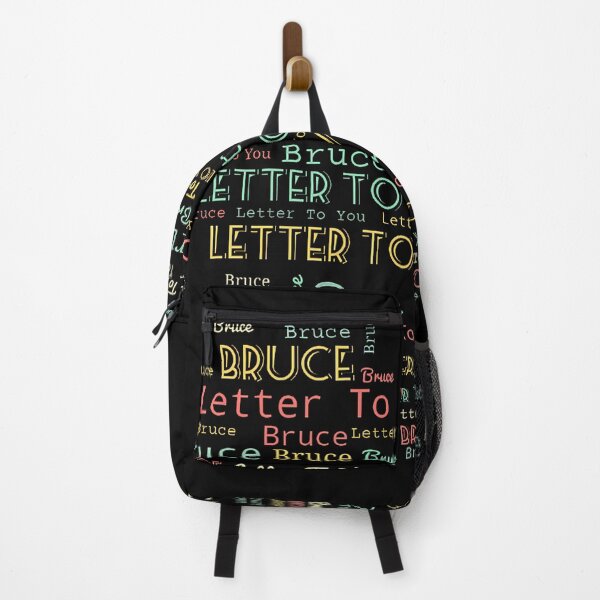 To You Bruce
LETTER TO
Bruce Letter To You Lett
LETTER TO
Bruce
Bruce Bruce Bruce
BRUCE Bruce
Letter To
Bruce Bruce Letter
uce Bruce Bruce